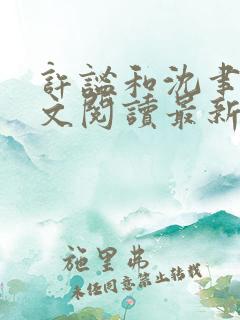 許謐和沈書
文閱讀最新
施里弗
未經同意禁止轉載